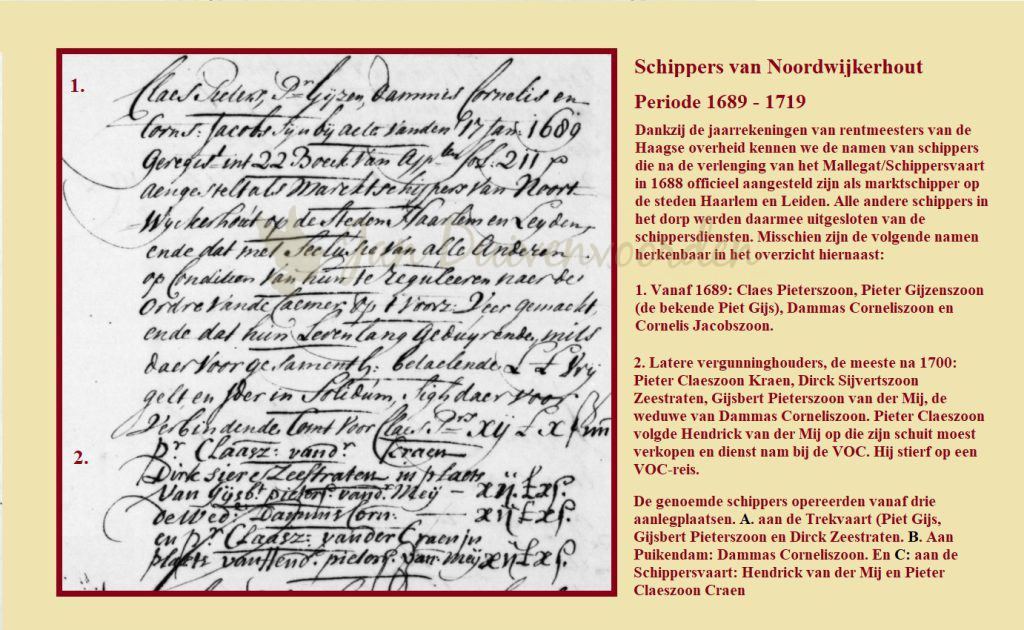 1.
Claes Pieters, Pr Gijzen, Dammes Cornelis en
Corns: Jacobs sijn bij acte vanden 17 Jan: 1689
Geregist int 22 Boeck van fol: 211
aengestelt als Marcktschippers van Noort
Wyckerhout op de steden Haarlem en Leyden,
ende dat met van alle Anderen
op Condition van hun te reguleren naer de
Ordre vande Voorz: gemackt
ende dat hun Leven lang geduyrende, mits
daer voor gesamenth: betaelende
gelt en in Solidum, sigh daer voor
Verbindende Comt voor Claes Prs xij £ x
2.
Pr Claasz: vandr Craen
Dirk Zeestraten in plaets
van Gijsbt pieters: vandr Meij — xij £ x
de Wede Dammis Corn: — xij £ x
en pr Claasz vander Craen in
plaets van Hend: pieters: van Meij xij £ x
Jan Duivenvoorden
Schippers van Noordwijkerhout
Periode 1689 - 1719
Dankzij de jaarrekeningen van rentmeesters van de
Haagse overheid kennen we de namen van schippers
die na de verlenging van het Mallegat/Schippersvaart
in 1688 officieel aangesteld zijn als marktschipper op
de steden Haarlem en Leiden. Alle andere schippers in
het dorp werden daarmee uitgesloten van de
schippersdiensten. Misschien zijn de volgende namen
herkenbaar in het overzicht hiernaast:
1. Vanaf 1689: Claes Pieterszoon, Pieter Gijzenszoon
(de bekende Piet Gijs), Dammas Corneliszoon en
Cornelis Jacobszoon.
2. Latere vergunninghouders, de meeste na 1700:
Pieter Claeszoon Kraen, Dirck Sijvertszoon
Zeestraten, Gijsbert Pieterszoon van der Mij, de
weduwe van Dammas Corneliszoon. Pieter Claeszoon
volgde Hendrick van der Mij op die zijn schuit moest
verkopen en dienst nam bij de VOC. Hij stierf op een
VOC-reis.
De genoemde schippers opereerden vanaf drie
aanlegplaatsen. A. aan de Trekvaart (Piet Gijs,
Gijsbert Pieterszoon en Dirck Zeestraten. B. Aan
Puikendam: Dammas Corneliszoon. En C: aan de
Schippersvaart: Hendrick van der Mij en Pieter
Claeszoon Craen